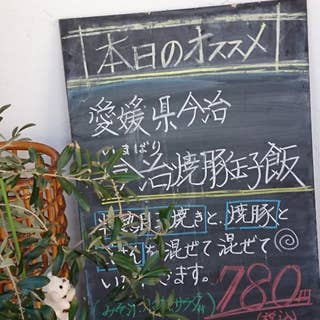 本日のオススメ
愛媛県今治
いまばり
今治焼豚玉子飯
半熟目玉焼きと、焼豚と
ごはんを混ぜて混ぜて
いただきます。
780円
(税込)
(みそ汁、サラダ付)